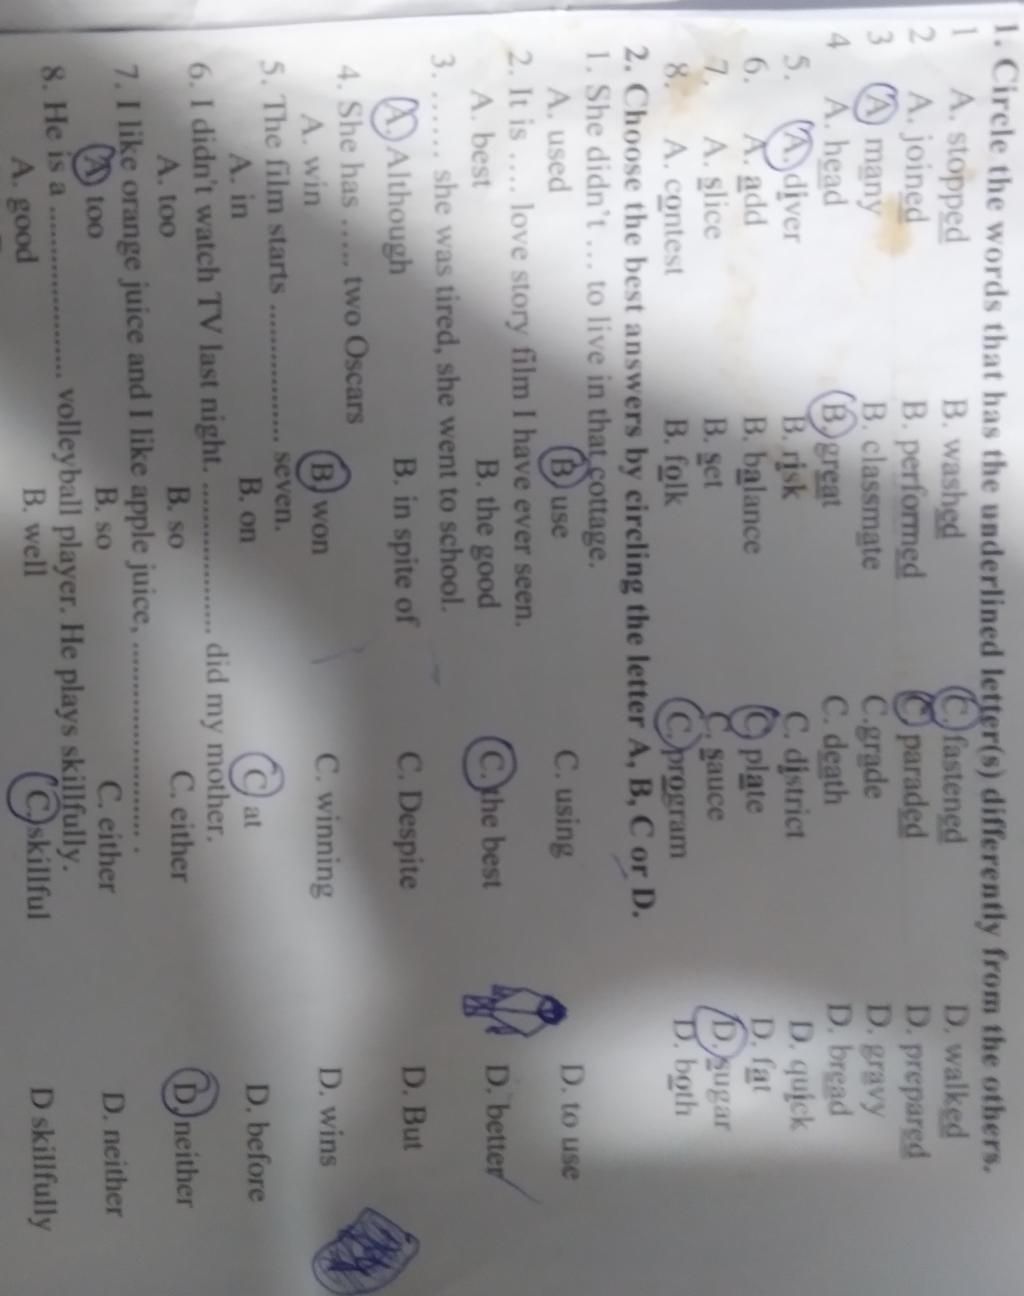 1. Circle the words that has the underlined letter(s) differently from the others.
1 A. stopped B. washed C. fastened D. walked
2 A. joined B. performed C. paraded D. prepared
3 A. many B. classmate C.grade D. gravy
4 A. head B. great C. death D. bread
5. A. diver B. risk C. district D. quick
6. A. add B. balance C. plate D. fat
7. A. slice B. set C. sauce D. sugar
8. A. contest B. folk C. program D. both
2. Choose the best answers by circling the letter A, B, C or D.
1. She didn't ... to live in that cottage.
A. used B. use C. using D. to use
2. It is .... love story film I have ever seen.
A. best B. the good C. the best D. better
3. ...... she was tired, she went to school.
A. Although B. in spite of C. Despite D. But
4. She has ..... two Oscars
A. win B. won C. winning D. wins
5. The film starts ................ seven.
A. in B. on C. at D. before
6. I didn't watch TV last night. .................. did my mother.
A. too B. so C. either D. neither
7. I like orange juice and I like apple juice, ....................... .
A. too B. so C. either D. neither
8. He is a .................... volleyball player. He plays skillfully.
A. good B. well C. skillful D skillfully